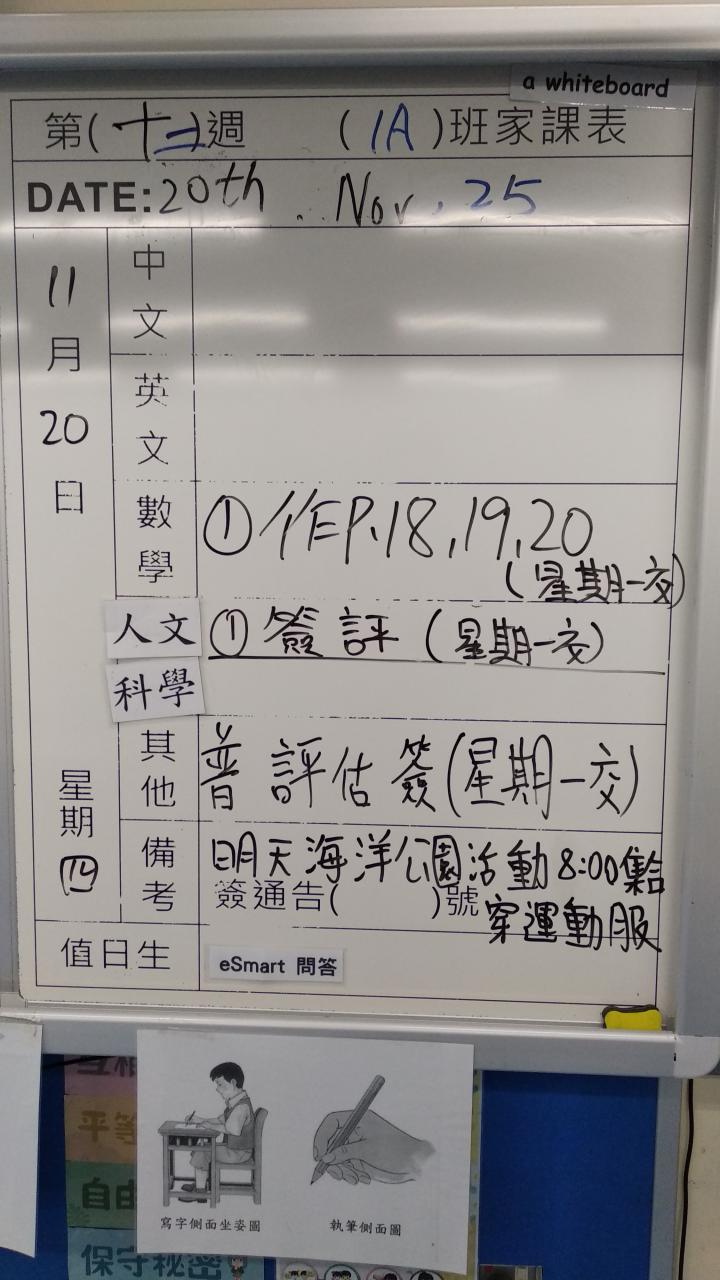 a whiteboard
第(十二)週 (1A)班家課表
DATE: 20th Nov, 25
11月20日 星期四
中文
英文
數學 ①作P.18,19,20
(星期一交)
人文科學 ①簽評(星期一交)
其他 普評估簽(星期一交)
備考 明天海洋公園活動8:00集合
簽通告( )號 穿運動服
值日生 eSmart 問答
平等
自由
保守秘密
寫字側面坐姿圖 執筆側面圖